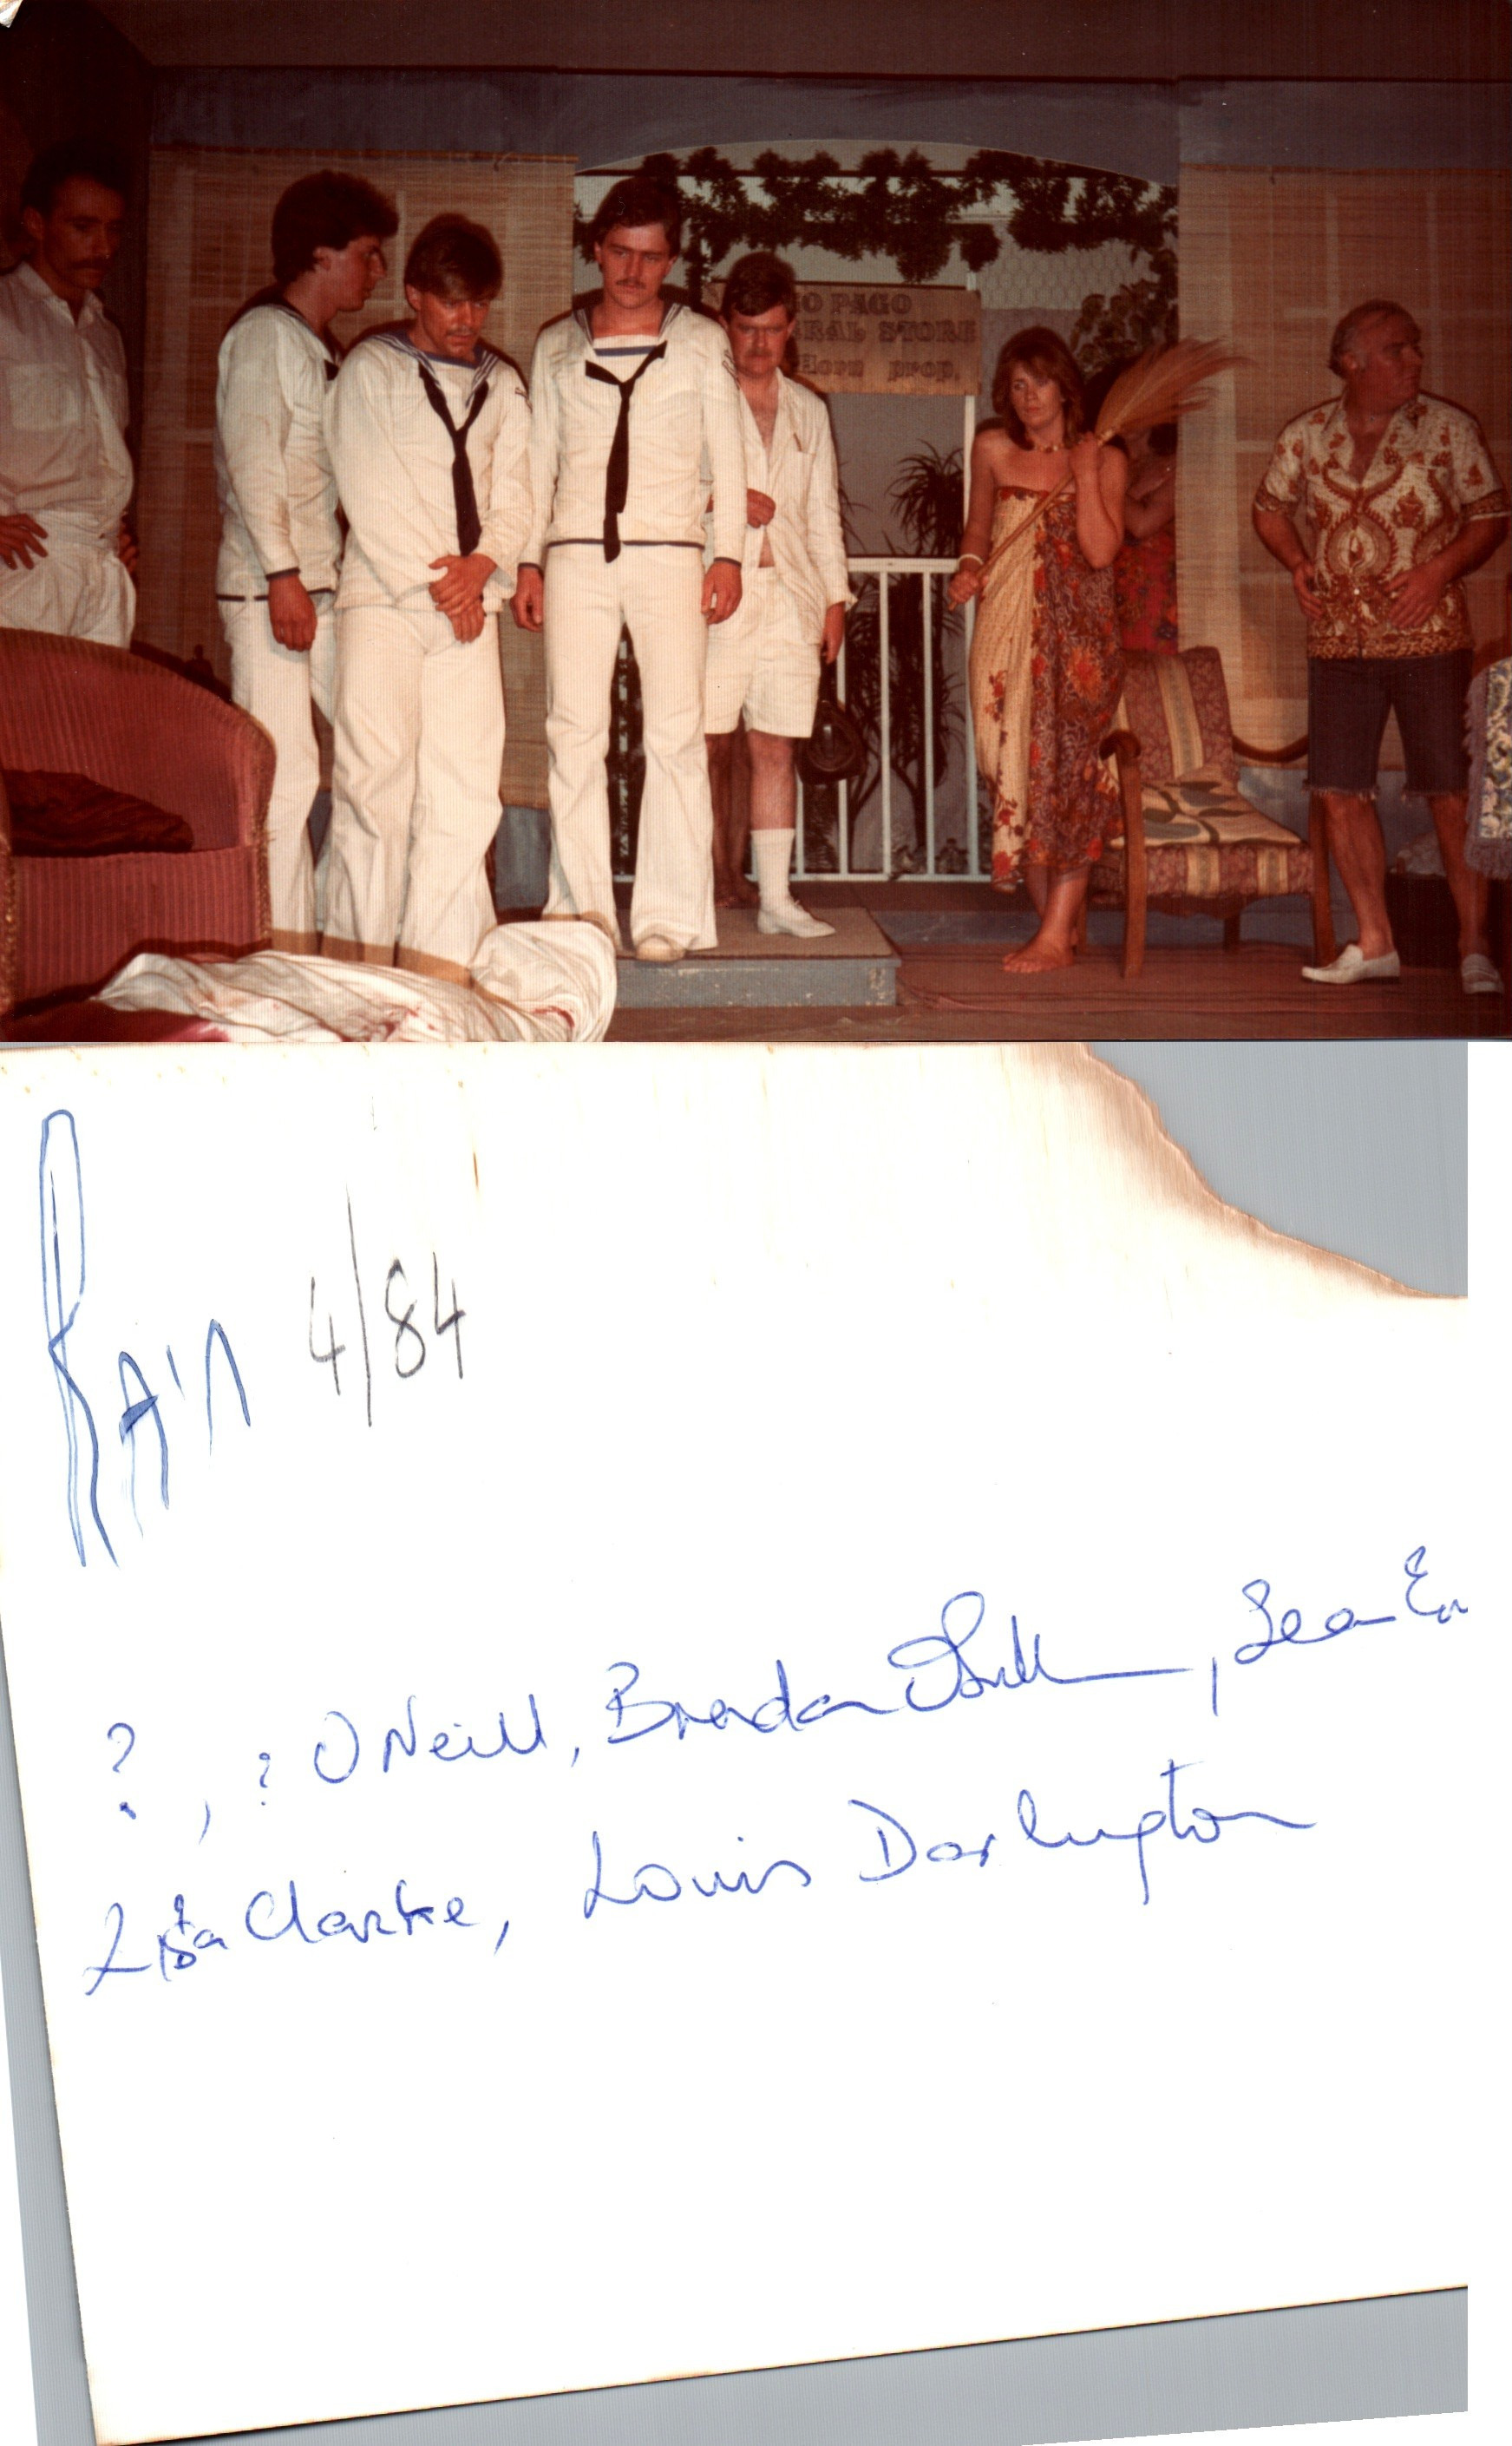 GO PAGO
ERAL STORE
Horn prop.
Rain 4/84
?, ? O'Neill, Brendan, Sean
Lisa Clarke, Louis Darlington